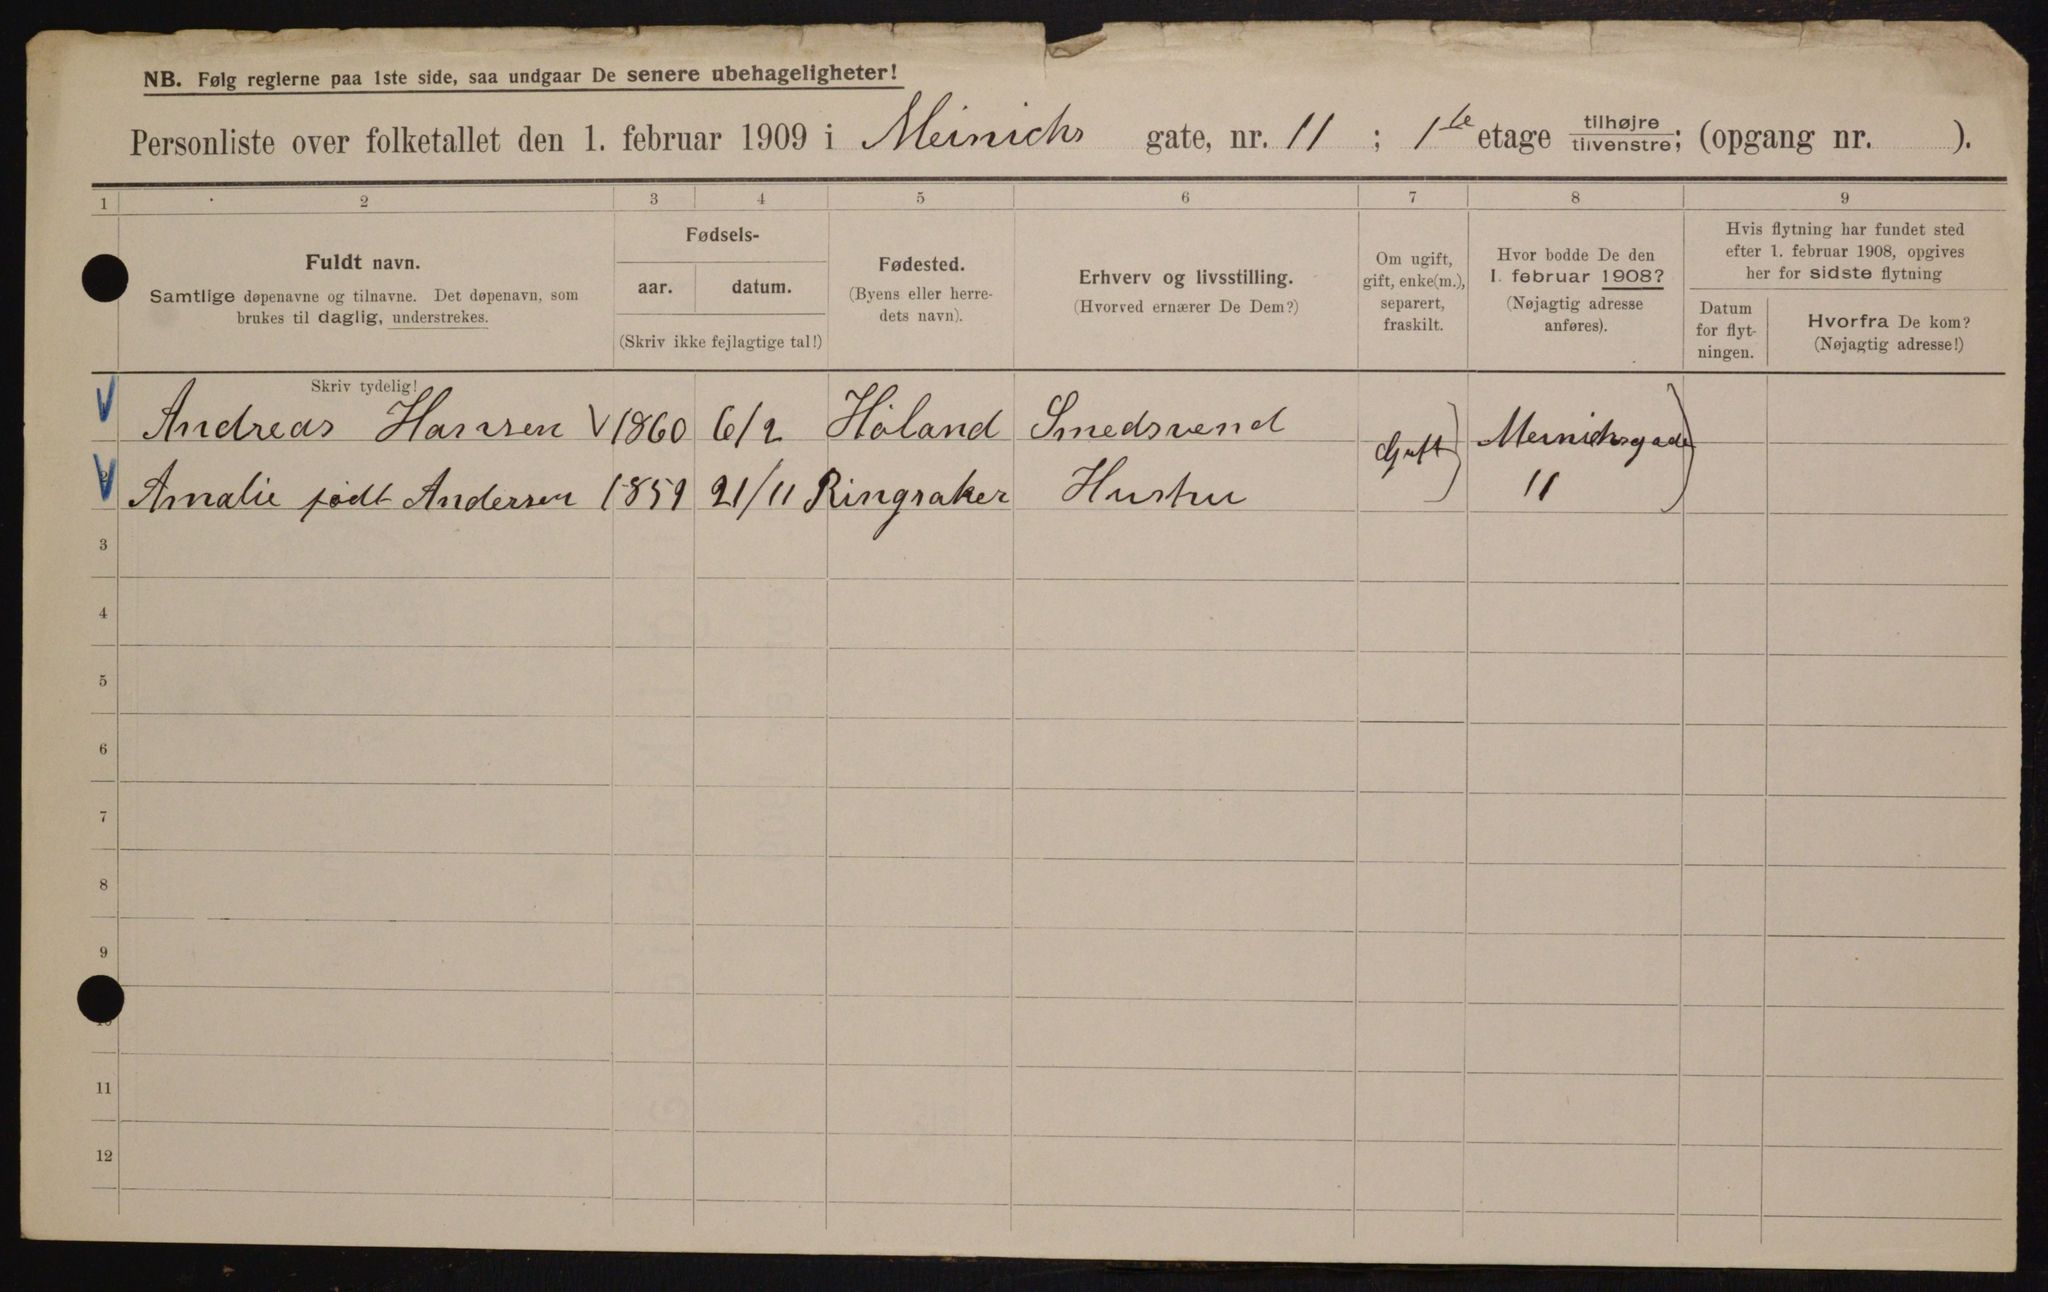 NB. Følg reglerne paa 1ste side, saa undgaar De senere ubehageligheter!
Personliste over folketallet den 1. februar 1909 i Meinichs gate, nr. 11 ; 1ste etage tilhøjre / tilvenstre; (opgang nr. ).
1 2 3 4 5 6 7 8 9
Fuldt navn.
Samtlige døpenavne og tilnavne. Det døpenavn, som
brukes til daglig, understrekes.
Skriv tydelig!
Fødsels-
aar. datum.
(Skriv ikke fejlagtige tal!)
Fødested.
(Byens eller herre-
dets navn).
Erhverv og livsstilling.
(Hvorved ernærer De Dem?)
Om ugift,
gift, enke(m.),
separert,
fraskilt.
Hvor bodde De den
1. februar 1908?
(Nøjagtig adresse
anføres).
Hvis flytning har fundet sted
efter 1. februar 1908, opgives
her for sidste flytning
Datum
for flyt-
ningen.
Hvorfra De kom?
(Nøjagtig adresse!)
Andreas Hansen 1860 6/2 Høland Smedsvend Gift Meinichsgade
Amalie født Andersen 1859 21/11 Ringsaker Hustru 11
3
4
5
6
7
8
9
10
11
12